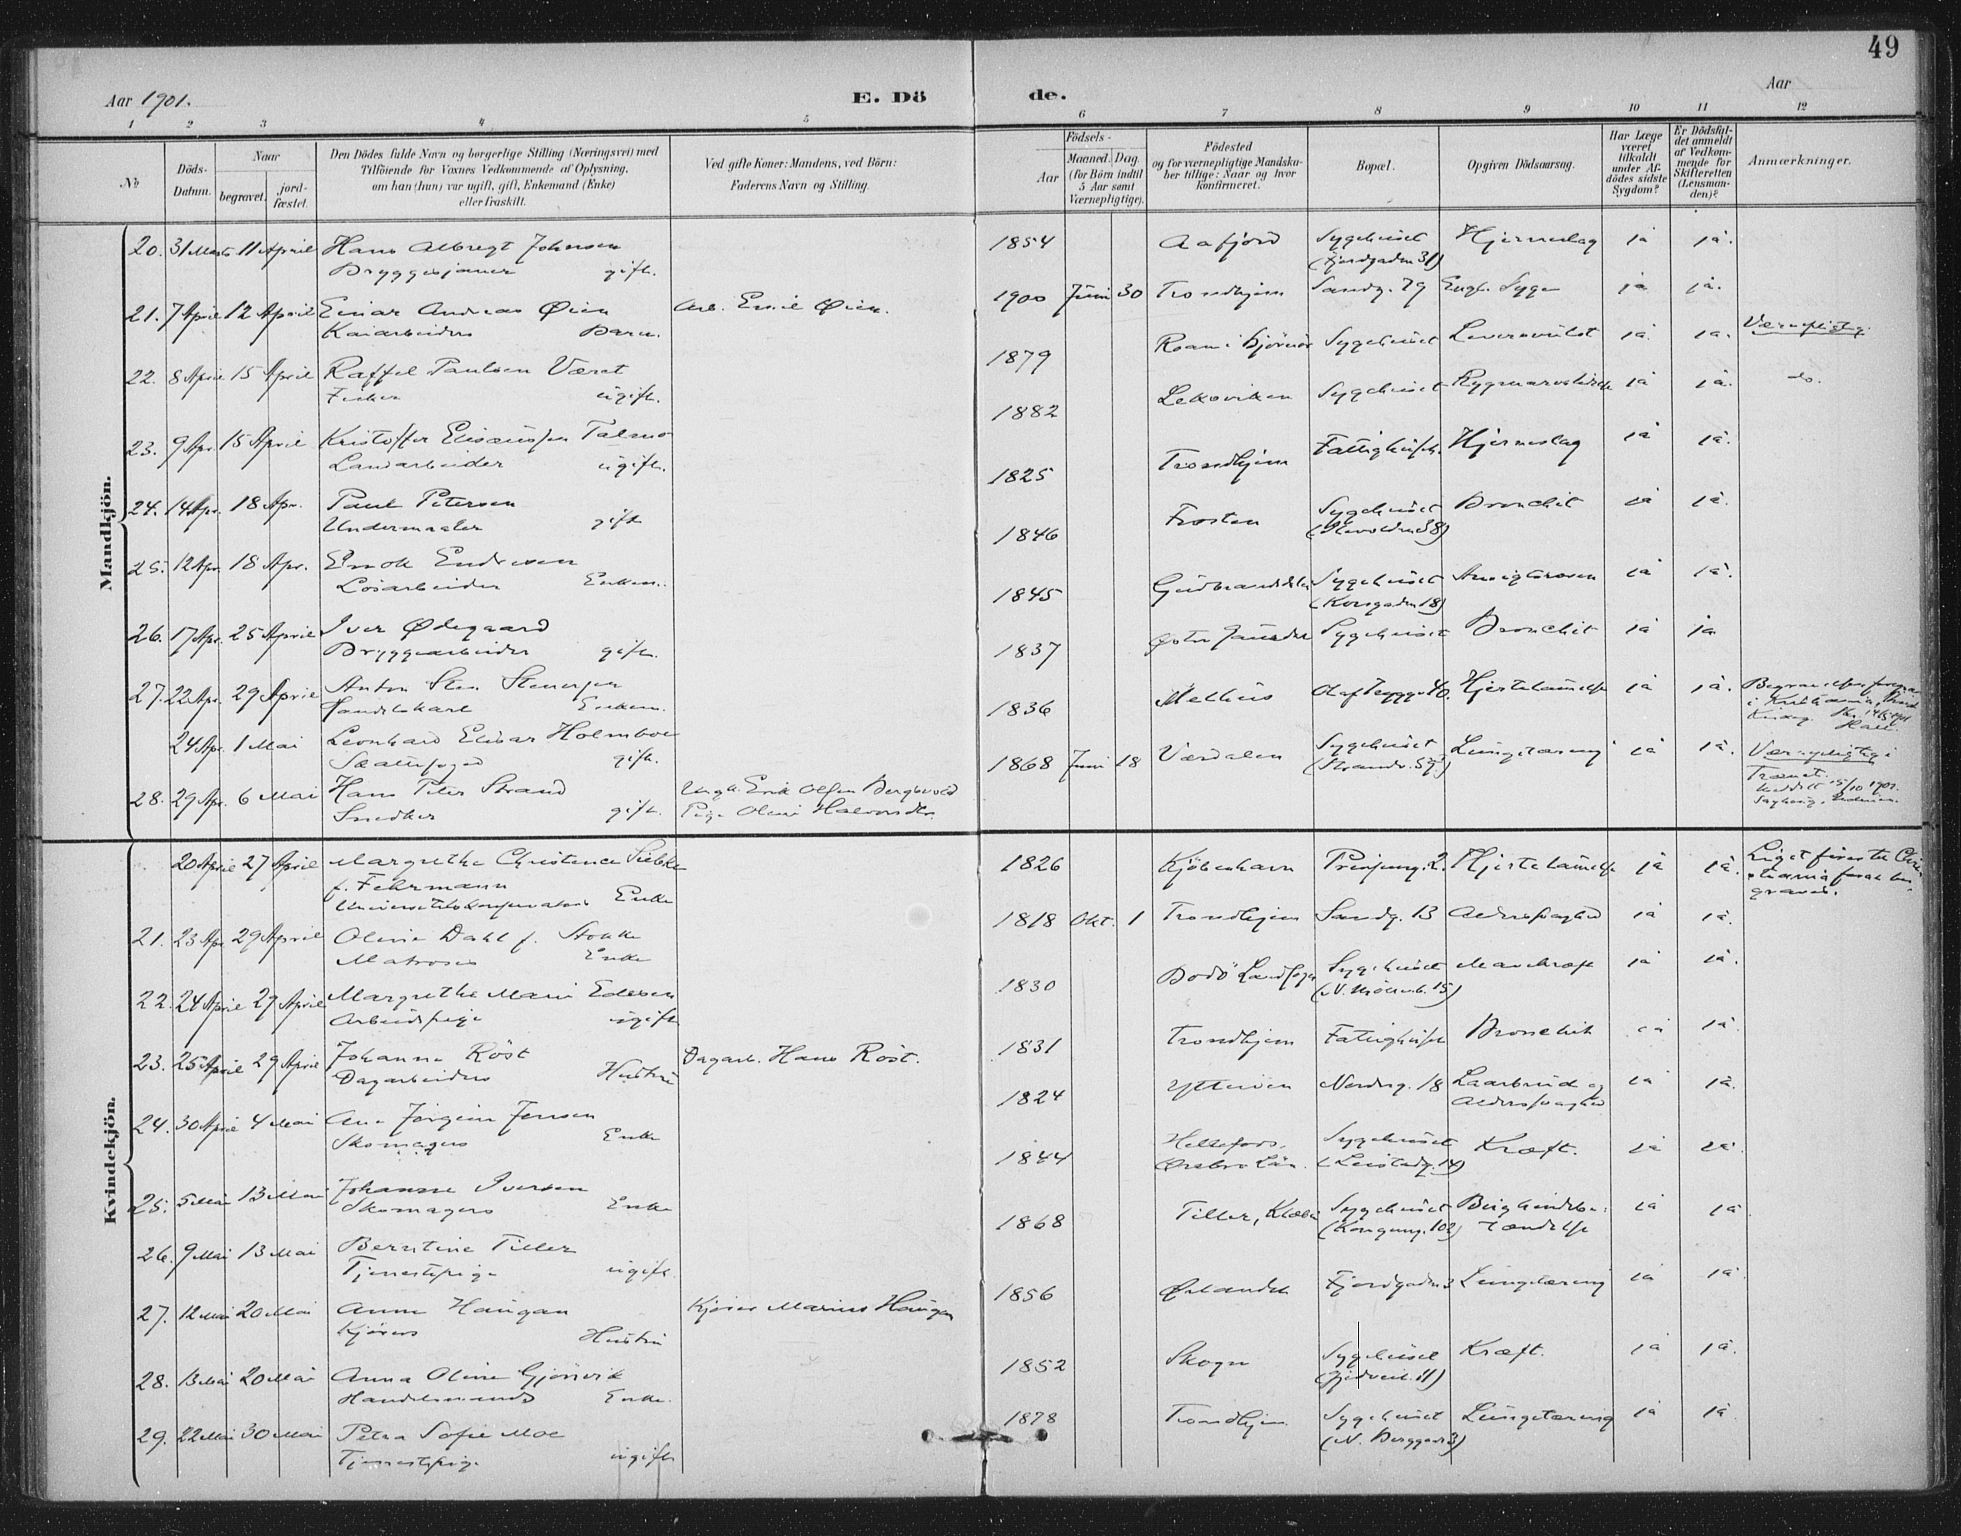 49
Aar 1901.
E. Dö
de.
Aar
1
2
3
4
5
6
7
8
9
10
11
12
No
Döds-
Datum.
Naar
begravet.
jord-
fæstet.
Den Dödes fulde Navn og borgerlige Stilling (Næringsvei) med
Tilföiende for Voxnes Vedkommende af Oplysning,
om han (hun) var ugift, gift, Enkemand (Enke)
eller fraskilt.
Ved gifte Koner: Mandens, ved Börn:
Faderens Navn og Stilling.
Födsels-
Aar
Maaned.
Dag.
(for Börn indtil
5 Aar samt
Værnepligtige).
Födested
og for værnepligtige Mandska-
ber tillige: Naar og hvor
konfirmeret.
Bopæl.
Opgiven Dödsaarsag.
Har Læge
været
tilkaldt
under Af-
dödes sidste
Sygdom?
Er Dödsfal-
det anmeldt
af Vedkom-
mende for
Skifteretten
(Lensman-
den)?
Anmærkninger.
Mandkjön.
20. 31 Marts 11 April Hans Albregt Johnsen 1854 Aafjord Sygehuset Hjerneslag ja ja.
Bryggesjauer gift. (Fjordgaden 31)
21. 7 April 12 April Einar Andreas Øien Arb. Emil Øien. 1900 Juni 30 Trondhjem Sandg. 79 Engl. Syge ja ja.
Kaiarbeiders Barn.
22. 8 April 15 April Raffel Paulsen Været 1879 Roan i Bjørnør Sygehuset Leversvulst ja ja. Værnepligtig.
Fisker ugift.
23. 9 Apr. 15 April Kristoffer Elisæussen Talmo 1882 Leksviken Sygehuset ja ja. do.
Landarbeider ugift.
24. 14 Apr. 18 Apr. Paul Petersen 1825 Trondhjem Fattighuset. Hjerneslag ja ja.
Undermaaler gift
25. 12 Apr. 18 Apr. Enok Endresen 1846 Frosten Sygehuset Bronchit ja ja.
Løsarbeider Enkem.
26. 17 Apr. 25 April Iver Ødegaard 1845 Gudbrandsdalen Sygehuset ja ja.
Bryggearbeider gift. (Korsgaden 18)
27. 22 Apr. 29 April Anton Sten Stenersen 1837 Sygehuset Bronchit ja ja
Handelskarl Enkem.
24 Apr. 1 Mai Leonhard Elisar Holmboe 1836 Melhus Olaf Trygg. 40. Hjertelammelse ja ja.
gift.
28. 29 Apr. 6 Mai Hans Peter Strand Ungk. Erik Olsen Bergsvold 1868 Juni 18 Værdalen Sygehuset Lungetæring ja ja. Værnepligtig i
Snedker gift. Pige Oline Halvorsdtr. Trænet.
Kvindekjön.
20 April 27 April Margrethe Christence Siebke 1826 Kjöbenhavn Prinseng. 2. Hjertelammelse ja ja. Liget føres til Chri-
f. Fehrmann stiania for at be-
Universitetskonservators Enke graves.
21. 23 Apr. 29 April Oline Dahl f. Stokke 1818 Okt. 1 Trondhjem Sandg. 13 Alderssvaghed ja ja.
Matroses Enke
22. 24 April 29 April Margrethe Marie Edesen 1830 Bodö Landsogn Sygehuset Mavekræft ja ja.
Arbeidspige ugift (N. Möllenb. 15)
23. 25 April 29 April Johanna Röst Dagarb. Hans Röst. 1831 Trondhjem Fattighuset Bronchit ja ja.
Dagarbeiders Hustru
24. 30 April 4 Mai Ane Jörgine Jensen 1824 Ytterøen Nordreg. 18 Laarbrud og ja ja.
Skomagers Enke Alderssvaghed
25. 5 Mai 13 Mai Johanne Iversen 1844 Hellefors. Sygehuset Kræft. ja ja.
Skomagers Enke Ørebro Län.
26. 9 Mai 13 Mai Berntine Tiller 1868 Tiller, Klæbu Sygehuset Bughindebe- ja ja
Tjenestepige ugift. (Kongensg. 102) tændelse
27. 12 Mai 20 Mai Anne Haugan Kjører Marius Haugan 1856 Ørlandet Fjordgaden Lungetæring ja ja.
Kjørers Hustru
28. 13 Mai 20 Mai Anna Oline Gjörvik 1852 Skogn Sygehuset Kræft. ja ja.
Handelsmands Enke.
29. 22 Mai 30 Mai Petra Sofie Moe 1878 Trondhjem. Sygehuset Lungetæring ja ja
Tjenestepige ugift